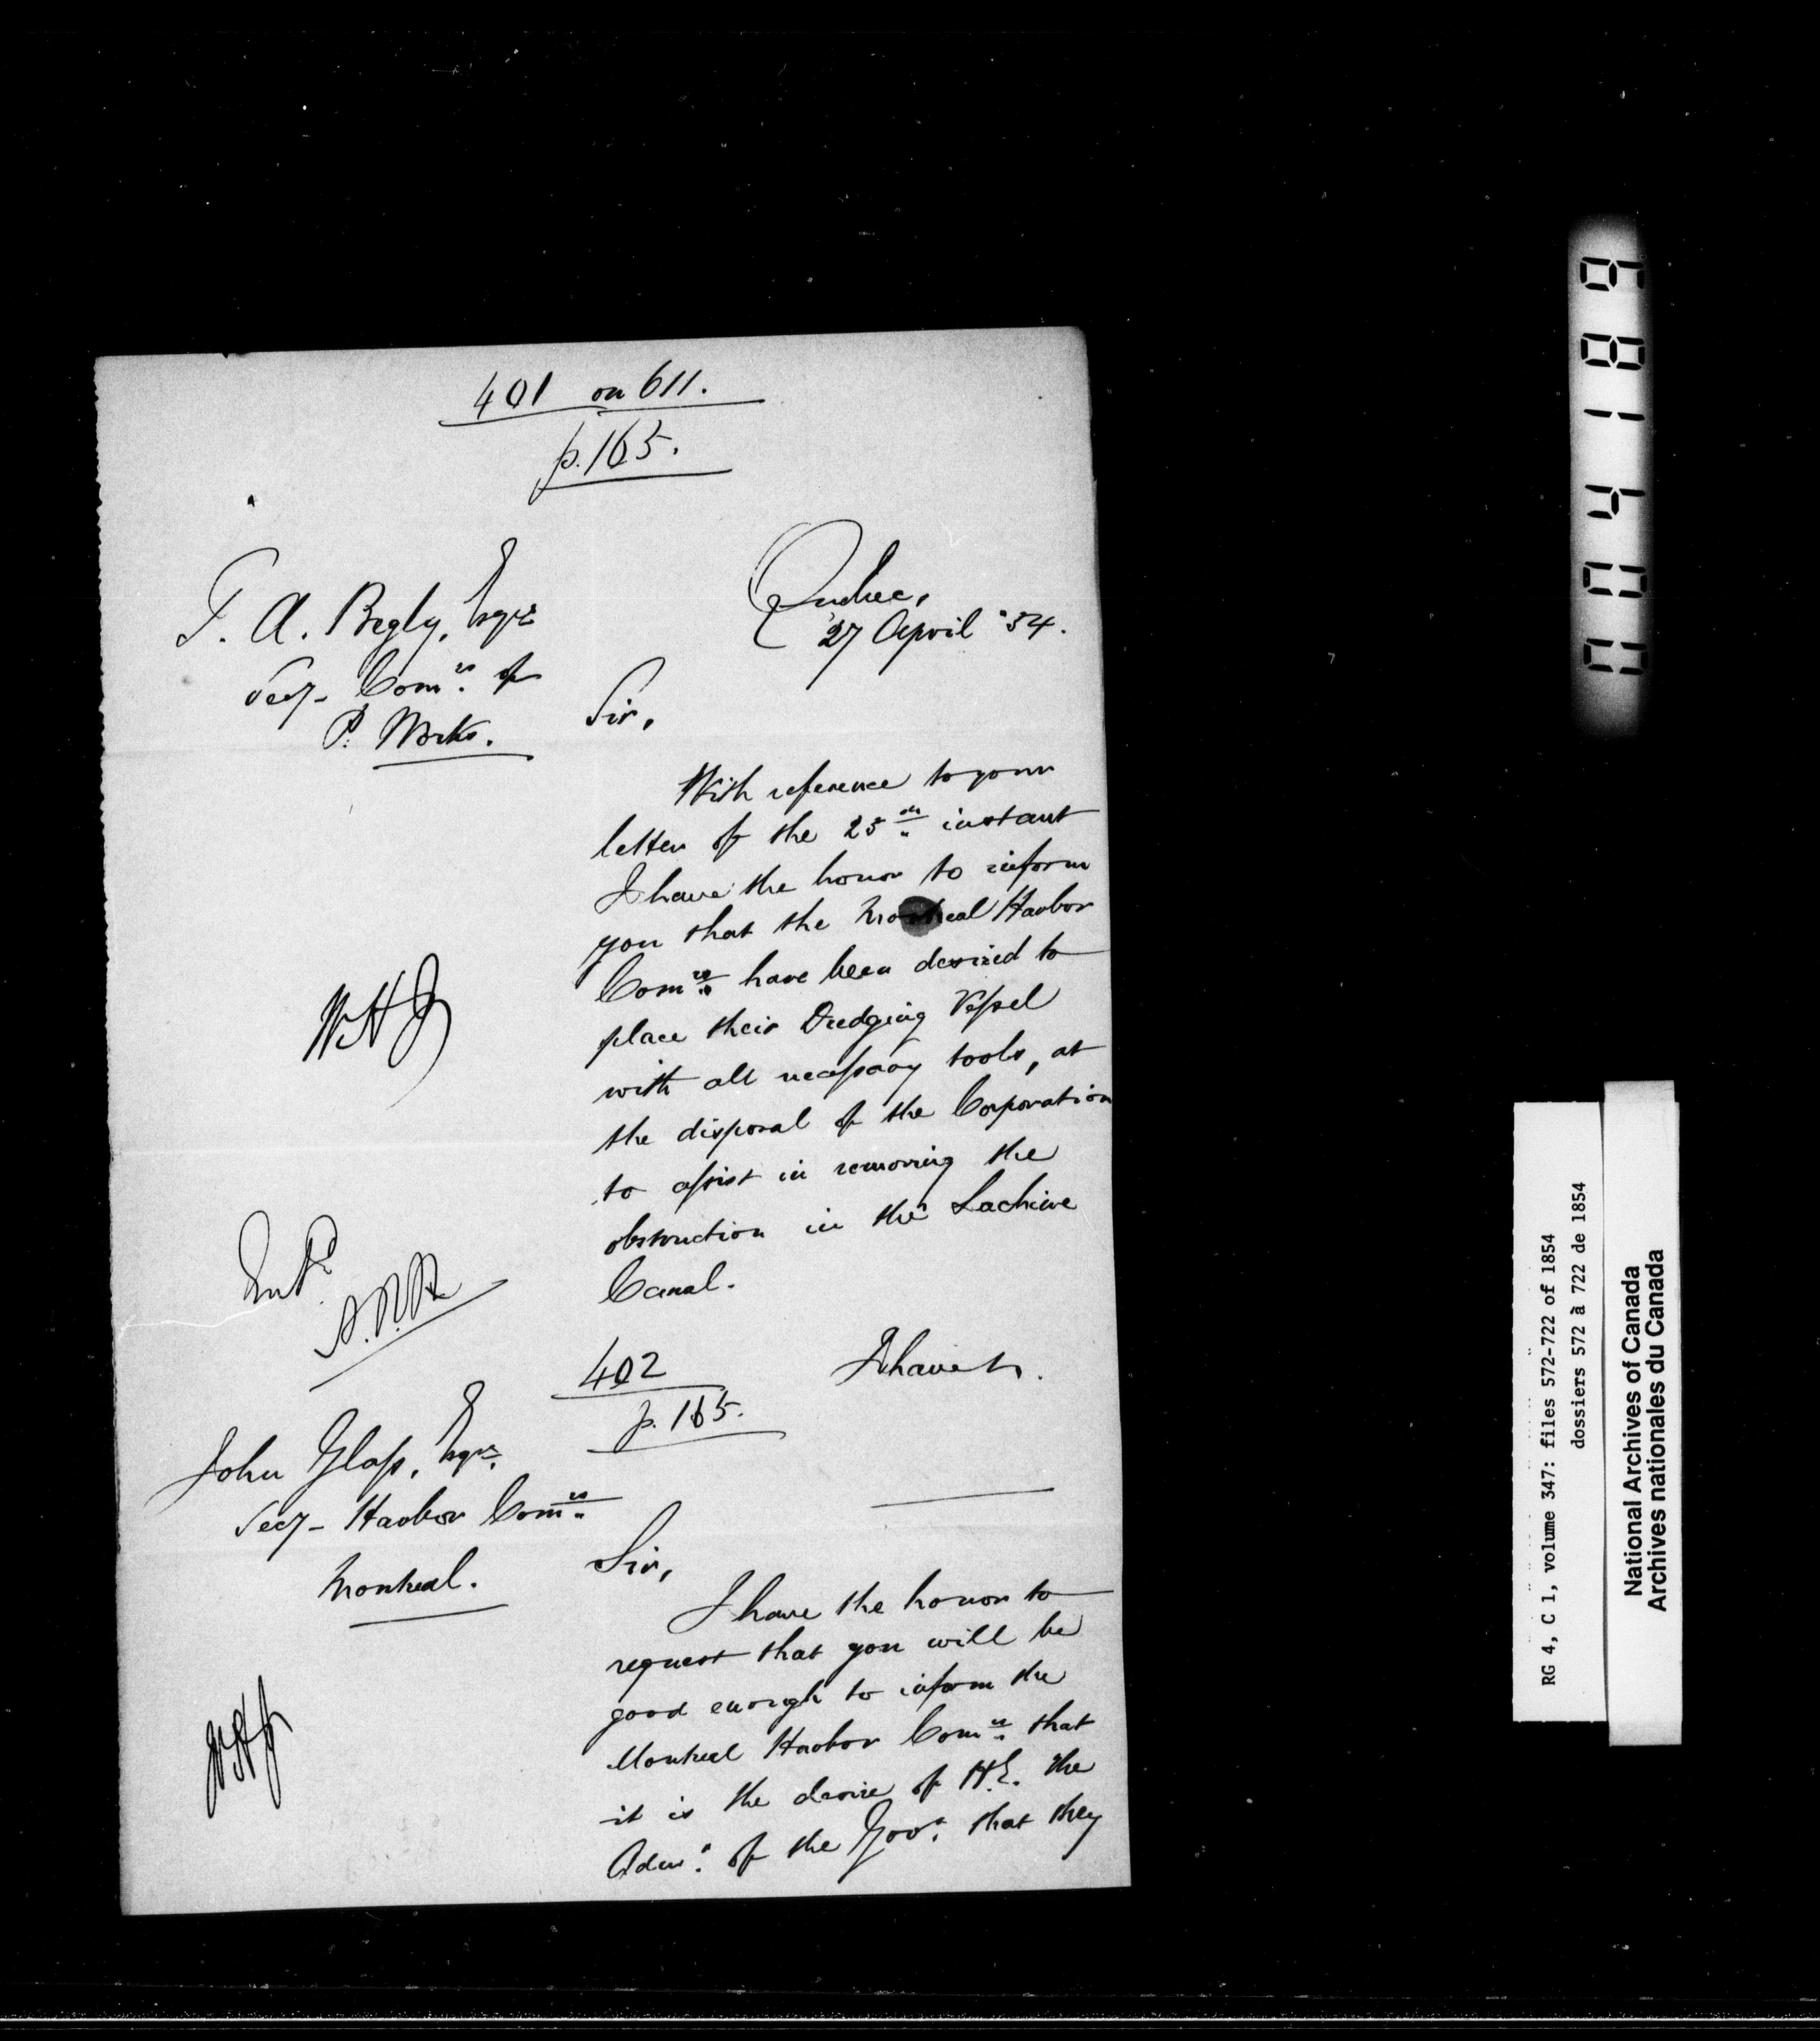 401 on 611.
p. 165.
T. A. Begly, Esqre
Secy- Comrs. of
P. Works.
Quebec,
27 April '54.
Sir,
With reference to your
letter of the 25th. instant
I have the honor to inform
you that the Montreal Harbor
Comrs. have been desired to
place their Dredging Vessel
with all necessary tools, at
the disposal of the Corporation
to assist in removing the
obstruction in the Lachine
Canal.
I have &.
WHJ
Entd.
402
p. 165.
John Glass, Esqre.
Secy- Harbor Comrs.
Montreal.
Sir,
I have the honor to
request that you will be
good enough to inform the
Montreal Harbor Comrs. that
it is the desire of H.E. the
Admr. of the Govt. that they
WHJ
RG 4, C 1, volume 347: files 572-722 of 1854
dossiers 572 à 722 de 1854
National Archives of Canada
Archives nationales du Canada